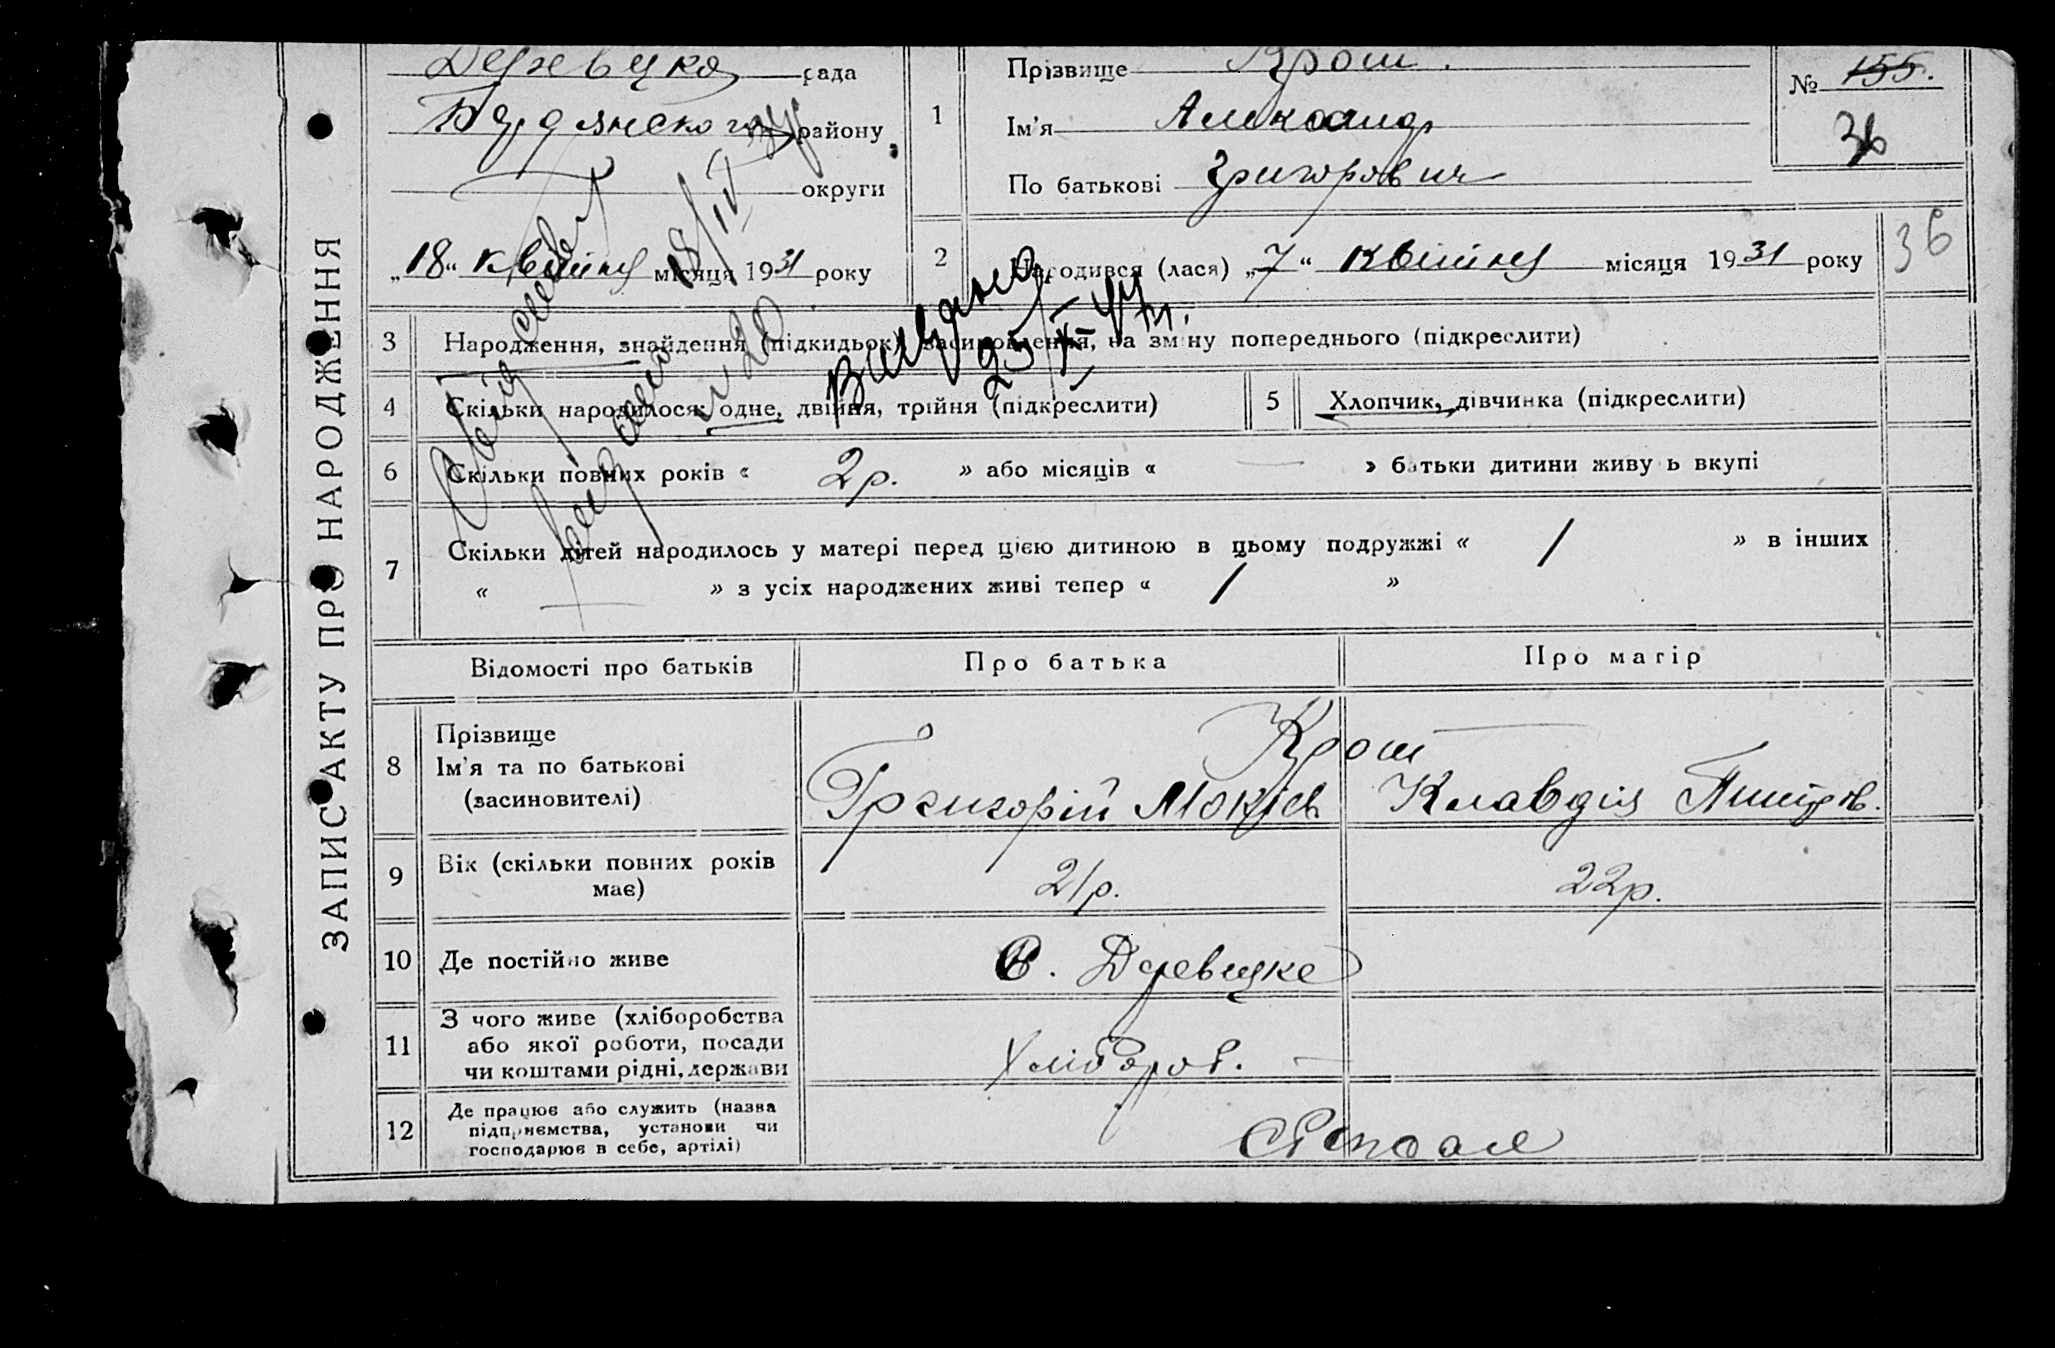 ЗАПИС АКТУ ПРО НАРОДЖЕННЯ
Деревецка рада
району
округи
„18“ Квітня місяця 1931 року
1
Прізвище Крот.
Ім'я Александр
По батькові Григорович
№ 155.
36
36
2
Народився (лася) „7“ Квітня місяця 1931 року
Видано
3 Народження, знайдення (підкидьок), засиновлення, на зміну попереднього (підкреслити)
4 Скільки народилося: одне, двійня, трійня (підкреслити)
5 Хлопчик, дівчинка (підкреслити)
6 Скільки повних років « 2 р. » або місяців « — » батьки дитини живуть вкупі
7 Скільки дітей народилось у матері перед цією дитиною в цьому подружжі « 1 » в інших
« — » з усіх народжених живі тепер « 1 »
Відомості про батьків
Про батька
Про матір
8 Прізвище
Ім'я та по батькові
(засиновителі)
Крот
Григорій Мокіев
Клавдія
9 Вік (скільки повних років
має)
21р.
22р.
10 Де постійно живе
С. Деревецке
11 З чого живе (хліборобства
або якої роботи, посади
чи коштами рідні, держави
Хлібороб. —
12 Де працює або служить (назва
підприємства, установи чи
господарює в себе, артілі)